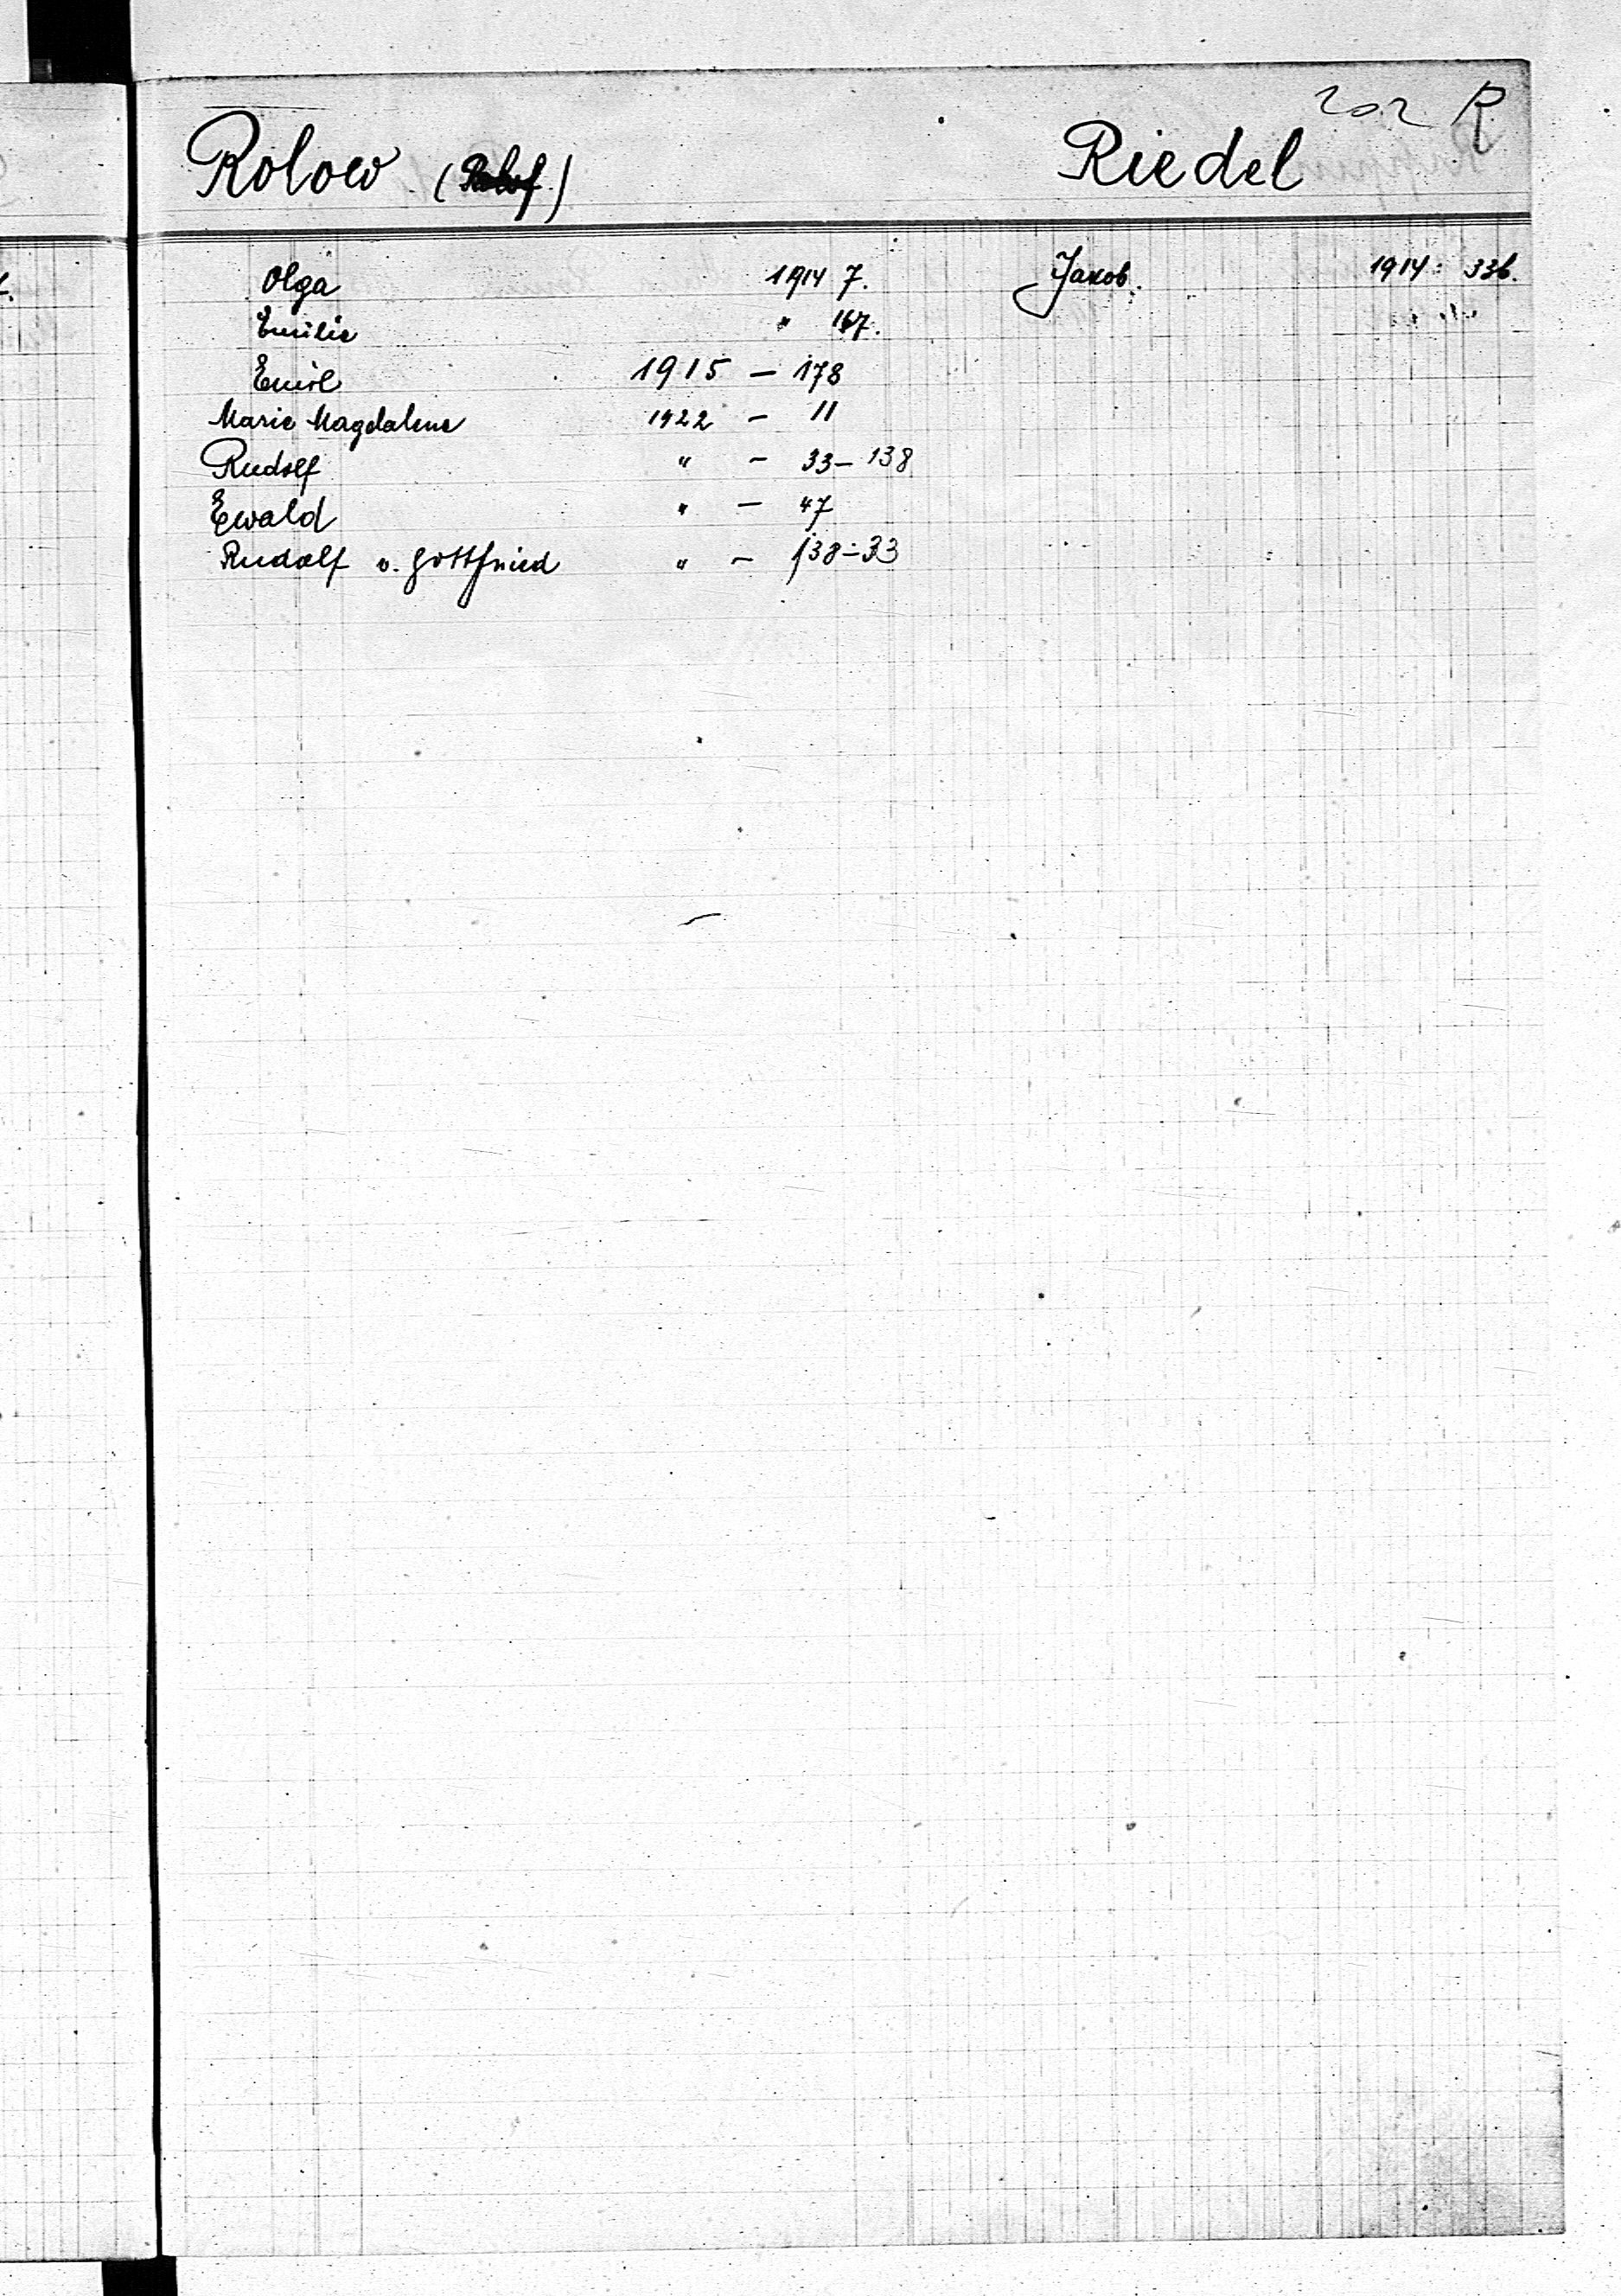 202 R
Rolow (Rolof)
Riedel
Olga 1914 7.
Emilie " 167.
Emil 1915 – 178
Marie Magdalene 1922 – 11
Rudolf " – 33–138
Ewald " – 47
Rudolf u. Gottfried " – 138–33
Jakob. 1914: 336.